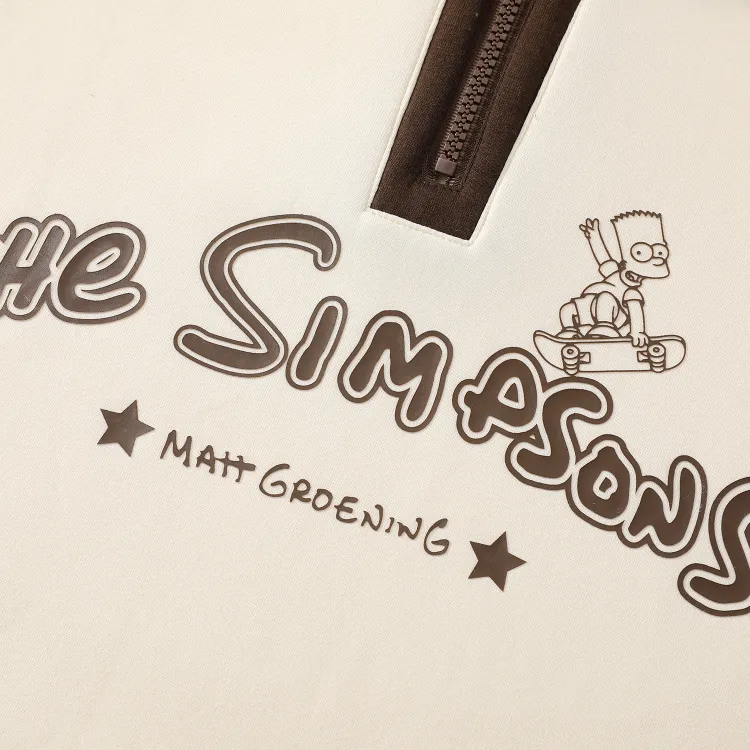 HE SIMPSONS
MATT GROENING